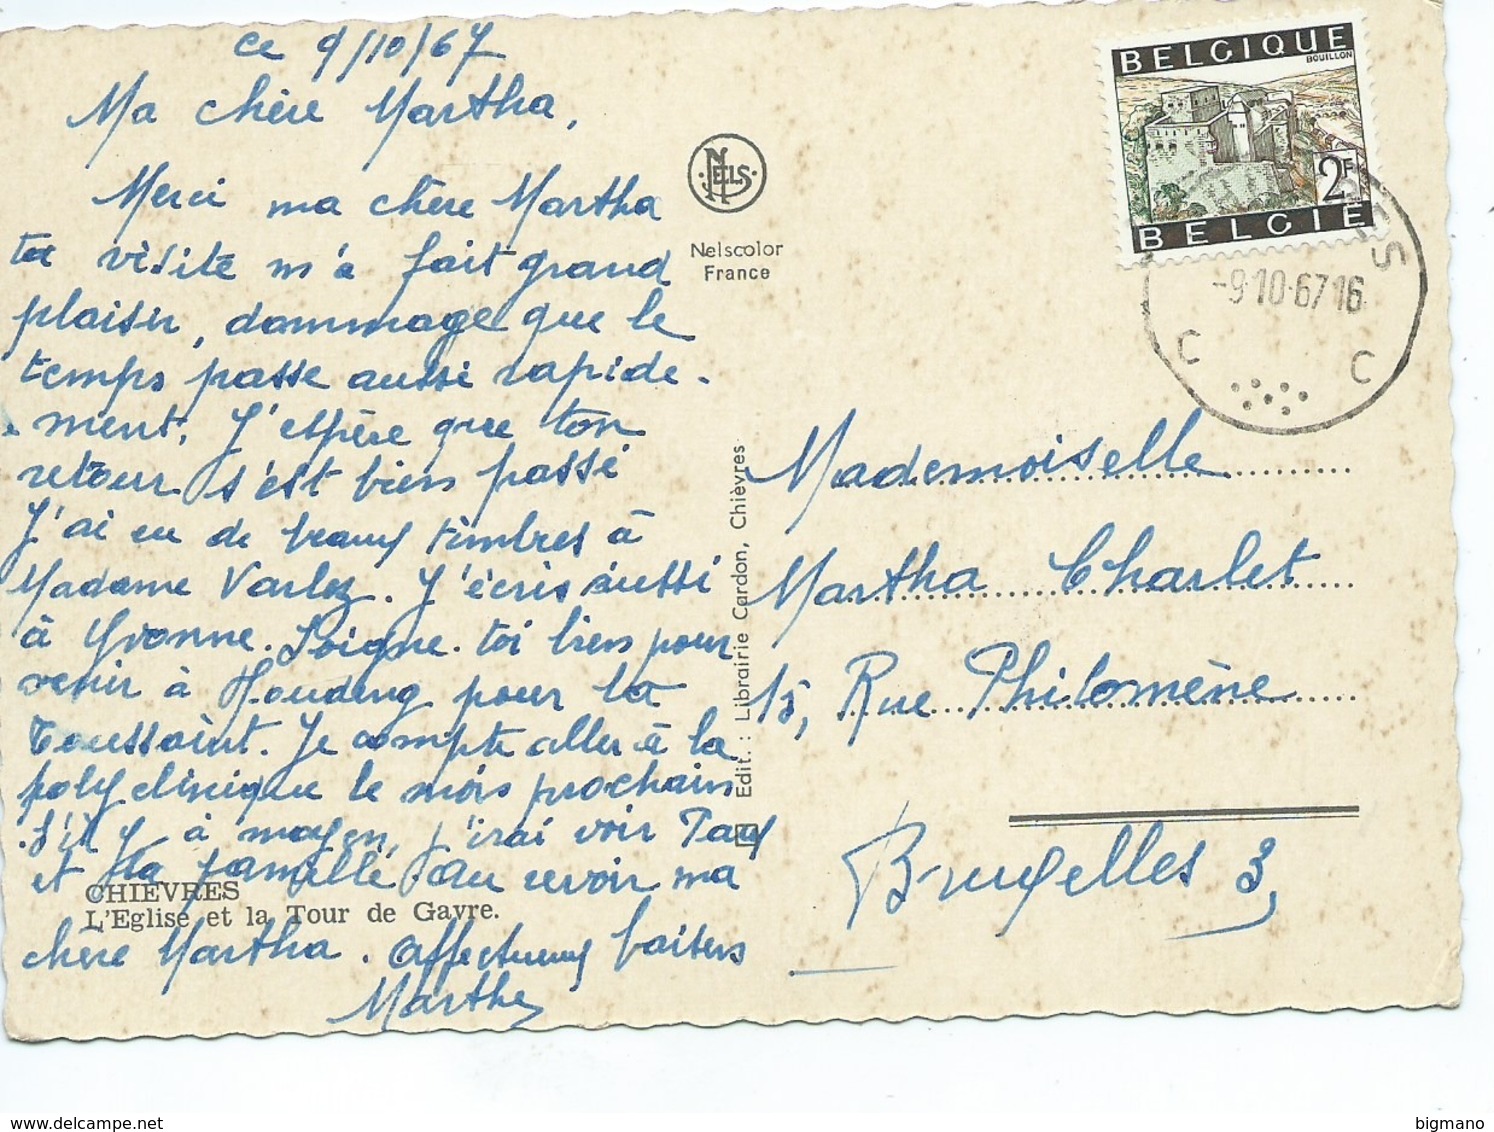 ce 9/10/67
Ma chère Martha,
Merci ma chère Martha
ta visite m'a fait grand
plaisir, dommage que le
temps passe aussi rapide-
ment. J'espère que ton
retour s'est bien passé
J'ai eu de beaux timbres à
Madame Varlez. J'écris aussi
à Yvonne. Soigne-toi bien pour
venir à Houdeng pour la
Toussaint. Je compte aller à la
polyclinique le mois prochain
s'il y à moyen, j'irai voir Paul
et sa famille. au revoir ma
chère Martha. affectueux baisers
Marthe
CHIEVRES
L'Eglise et la Tour de Gavre.
NELS
Nelscolor
France
Edit. : Librairie Cardon, Chièvres
BELGIQUE
BOUILLON
2F
BELGIE
-9-10-67 16
C C
Mademoiselle
Martha Charlet
15, Rue Philomène
Bruxelles 3
www.delcampe.net
bigmano